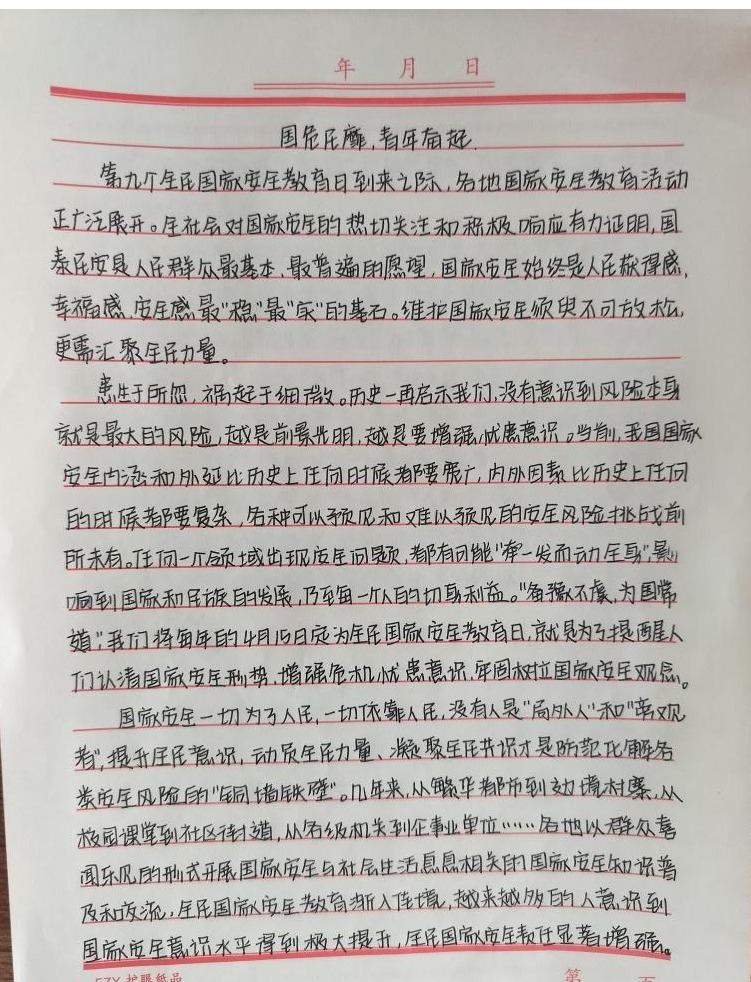 年 月 日
国危民靡,青年奋起.
第九个全民国家安全教育日到来之际,各地国家安全教育活动
正广泛展开。全社会对国家安全的热切关注和积极响应有力证明,国
泰民安是人民群众最基本、最普遍的愿望,国家安全始终是人民获得感,
幸福感,安全感最"稳"最"实"的基石。维护国家安全须臾不可放松,
更需汇聚全民力量。
患生于所忽,祸起于细微。历史一再启示我们,没有意识到风险本身
就是最大的风险,越是前景光明,越是要增强忧患意识。当前,我国国家
安全内涵和外延比历史上任何时候都要宽广,内外因素比历史上任何
的时候都要复杂,各种可以预见和难以预见的安全风险挑战前
所未有。任何一个领域出现安全问题,都有可能"牵一发而动全身",影
响到国家和民族的发展,乃至每一个人的切身利益。"备豫不虞,为国常
道",我们将每年的4月15日定为全民国家安全教育日,就是为了提醒人
们认清国家安全形势,增强危机忧患意识,牢固树立国家安全观念。
国家安全一切为了人民,一切依靠人民,没有人是"局外人"和"旁观
者",提升全民意识,动员全民力量、凝聚全民共识才是防范化解各
类安全风险的"铜墙铁壁"。几年来,从繁华都市到边境村寨,从
校园课堂到社区街道,从各级机关到企事业单位……各地以群众喜
闻乐见的形式开展国家安全与社会生活息息相关的国家安全知识普
及和交流,全民国家安全教育渐入佳境,越来越多的人意识到
国家安全意识水平得到极大提升,全民国家安全责任显著增强。
护眼纸品 第 页